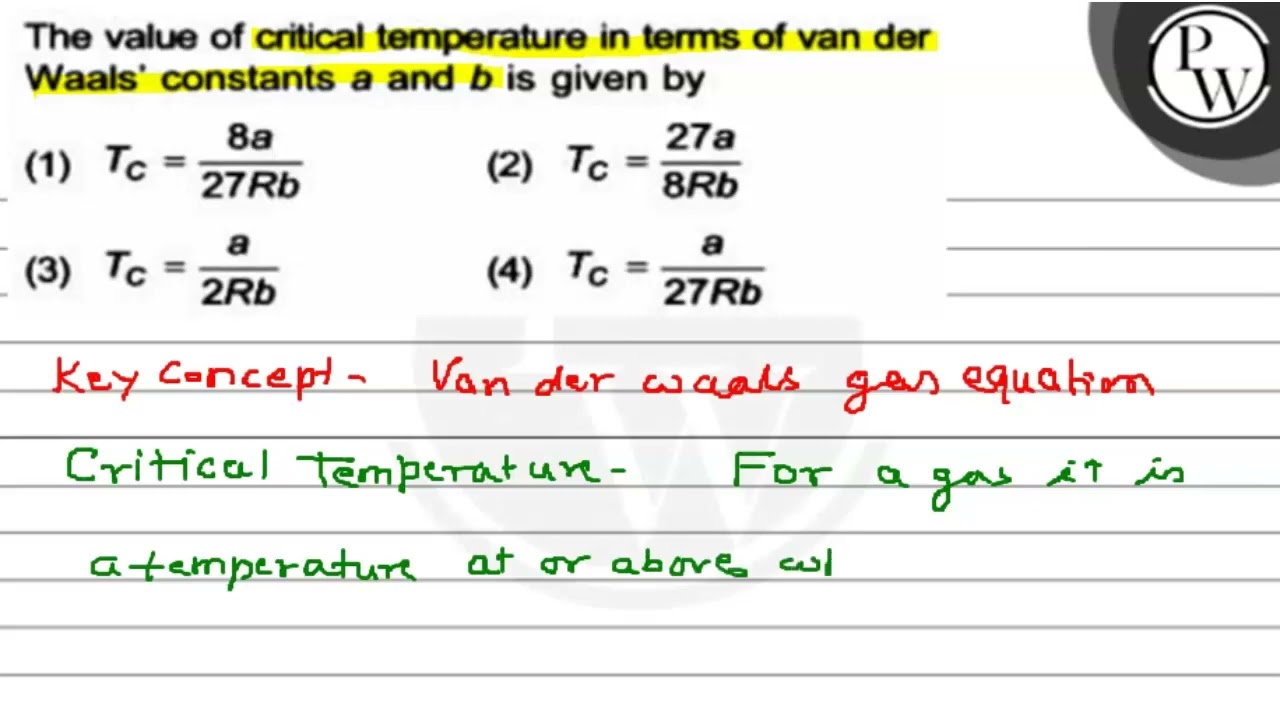 The value of critical temperature in terms of van der
Waals' constants a and b is given by
(1) TC = 8a/27Rb (2) TC = 27a/8Rb
(3) TC = a/2Rb (4) TC = a/27Rb
Key Concept - Van der waals gas equation
Critical Temperature - For a gas it is
a temperature at or above
P
W